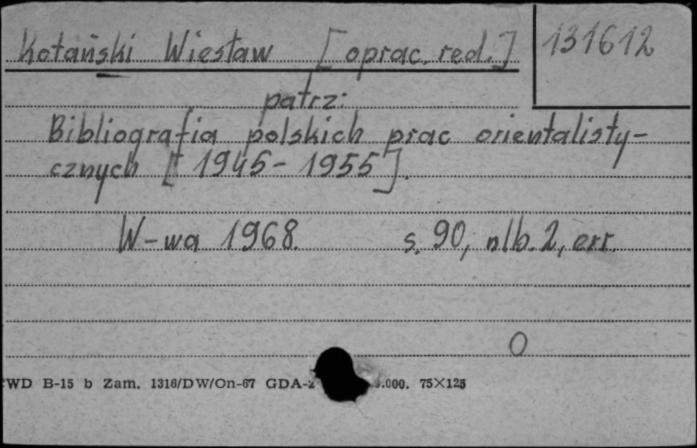 Kotański Wiesław [oprac. red.] 131612
patrz:
Bibliografia polskich prac orientalisty-
cznych [1945-1955].
W-wa 1968. s. 90, nlb. 2, err.
WD B-15 b Zam. 1316/DW/On-67 GDA-2 .000. 75×125